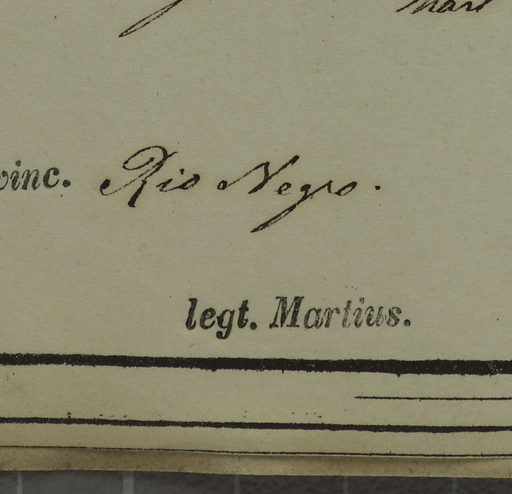 Mart
vinc. Rio Negro.
legt. Martius.